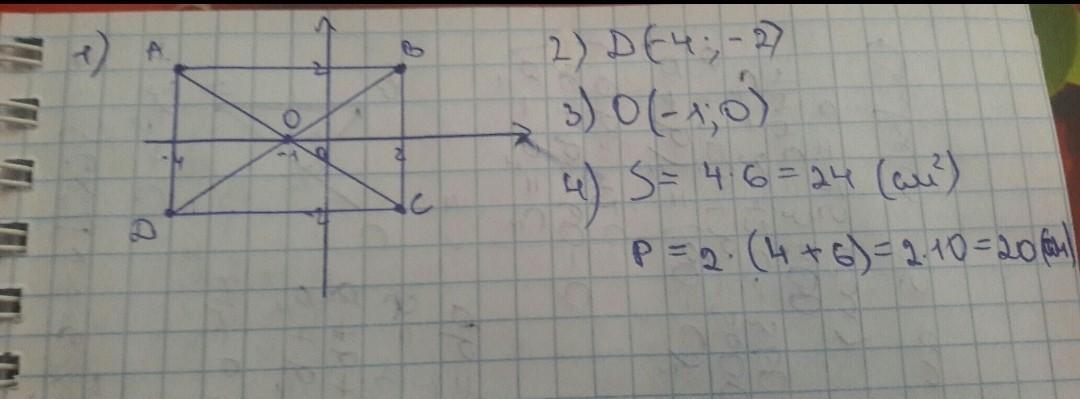 1)
A
B
2
O
-4
-1
0
2
D
C
-2
2) D(-4; -2)
3) O(-1; 0)
4) S = 4·6 = 24 (см²)
P = 2·(4+6) = 2·10 = 20(см)